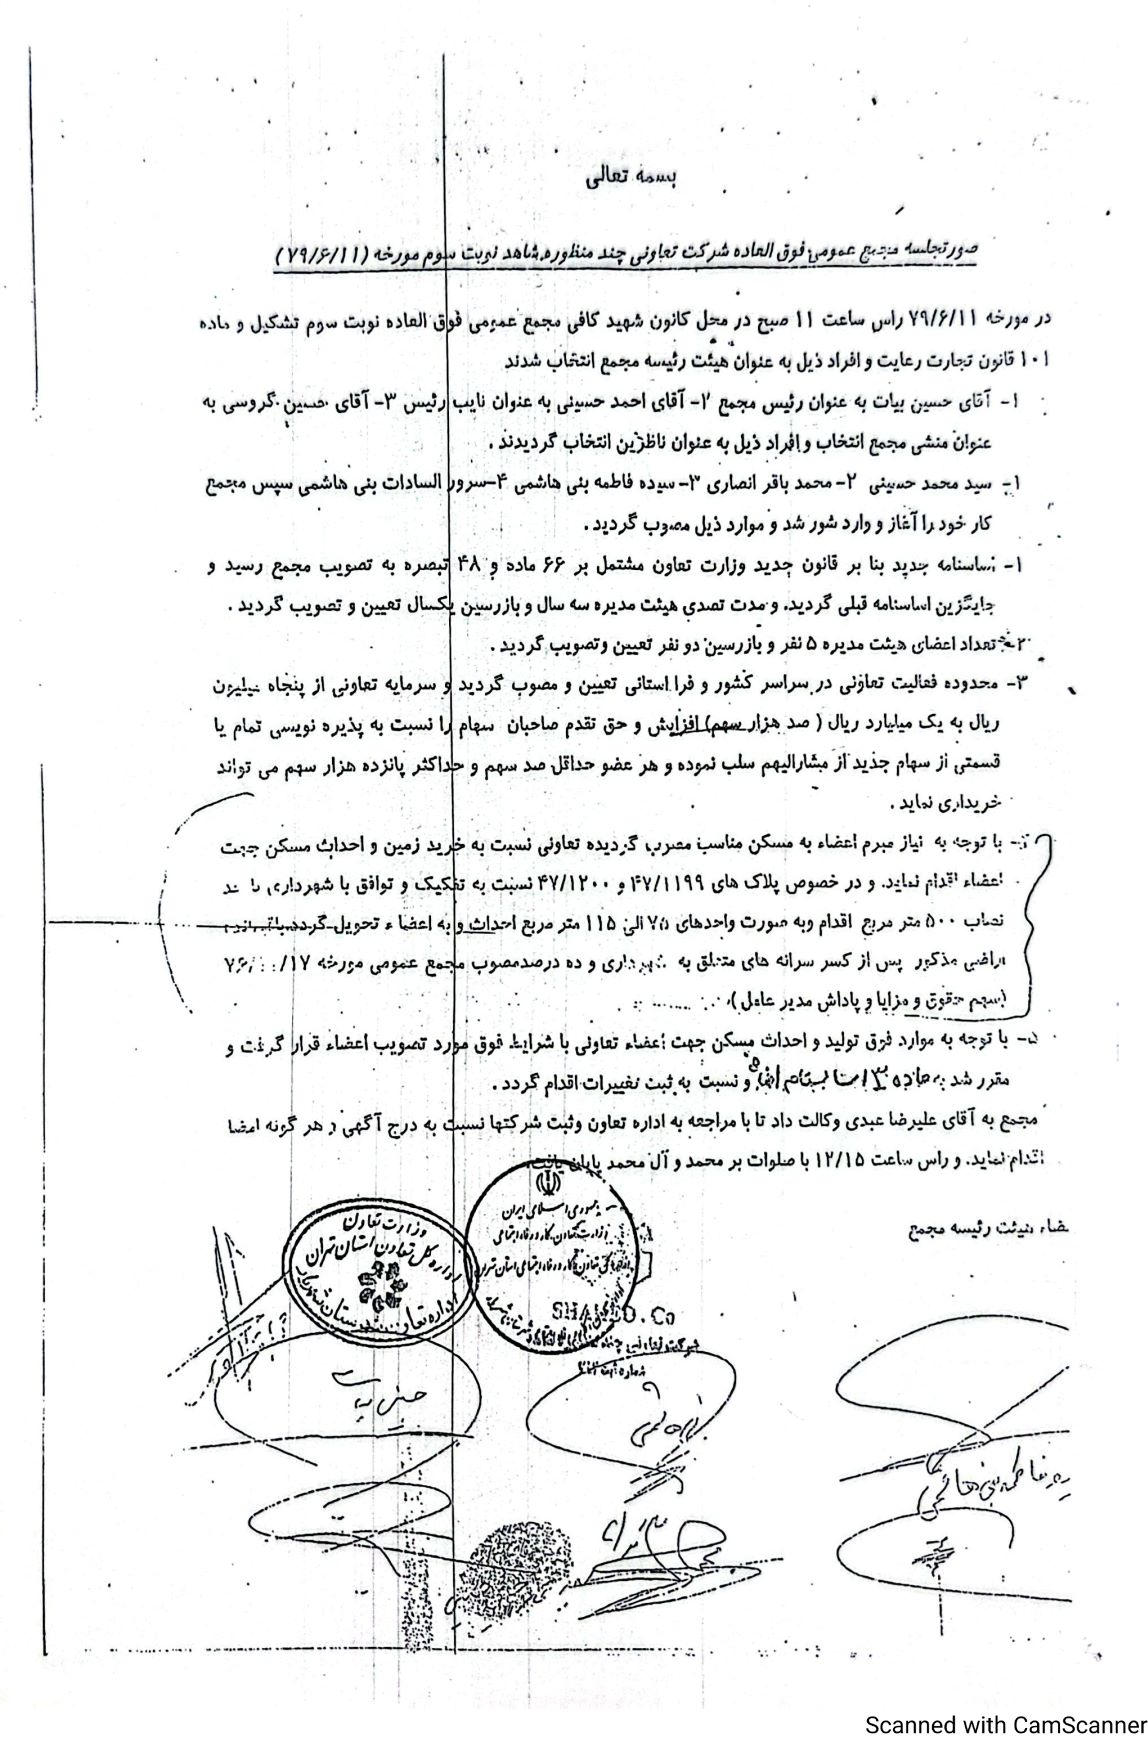 بسمه تعالی
صورتجلسه مجمع عمومی فوق العاده شرکت تعاونی چند منظوره شاهد نوبت سوم مورخه (۷۹/۶/۱۱)
در مورخه ۷۹/۶/۱۱ راس ساعت ۱۱ صبح در محل کانون شهید کافی مجمع عمومی فوق العاده نوبت سوم تشکیل و ماده
۱۰۱ قانون تجارت رعایت و افراد ذیل به عنوان هیئت رئیسه مجمع انتخاب شدند
۱- آقای حسین بیات به عنوان رئیس مجمع ۲- آقای احمد حسینی به عنوان نایب رئیس ۳- آقای حسین گروسی به
عنوان منشی مجمع انتخاب و افراد ذیل به عنوان ناظرین انتخاب گردیدند .
۱- سید محمد حسینی ۲- محمد باقر انصاری ۳- سیده فاطمه بنی هاشمی ۴-سرور السادات بنی هاشمی سپس مجمع
کار خود را آغاز و وارد شور شد و موارد ذیل مصوب گردید .
۱- اساسنامه جدید بنا بر قانون جدید وزارت تعاون مشتمل بر ۶۶ ماده و ۴۸ تبصره به تصویب مجمع رسید و
جایگزین اساسنامه قبلی گردید. و مدت تصدی هیئت مدیره سه سال و بازرسین یکسال تعیین و تصویب گردید .
۲- تعداد اعضای هیئت مدیره ۵ نفر و بازرسین دو نفر تعیین وتصویب گردید .
۳- محدوده فعالیت تعاونی در سراسر کشور و فرا استانی تعیین و مصوب گردید و سرمایه تعاونی از پنجاه میلیون
ریال به یک میلیارد ریال ( صد هزار سهم) افزایش و حق تقدم صاحبان سهام را نسبت به پذیره نویسی تمام یا
قسمتی از سهام جدید از مشارالیهم سلب نموده و هر عضو حداقل صد سهم و حداکثر پانزده هزار سهم می تواند
خریداری نماید .
با توجه به نیاز مبرم اعضاء به مسکن مناسب مصوب گردیده تعاونی نسبت به خرید زمین و احداث مسکن جهت
اعضاء اقدام نماید. و در خصوص پلاک های ۴۷/۱۱۹۹ و ۴۷/۱۲۰۰ نسبت به تفکیک و توافق با شهرداری با حد
نصاب ۵۰۰ متر مربع اقدام وبه صورت واحدهای ۷۵ الی ۱۱۵ متر مربع احداث و به اعضاء تحویل گردد
اراضی مذکور پس از کسر سرانه های متعلق به شهرداری و ده درصدمصوب مجمع عمومی مورخه
(سهم حقوق و مزایا و پاداش مدیر عامل)
۵- با توجه به موارد فوق تولید و احداث مسکن جهت اعضاء تعاونی با شرایط فوق مورد تصویب اعضاء قرار گرفت و
مقرر شد و نسبت به ثبت تغییرات اقدام گردد .
مجمع به آقای علیرضا عبدی وکالت داد تا با مراجعه به اداره تعاون وثبت شرکتها نسبت به درج آگهی و هر گونه امضا
اقدام نماید. و راس ساعت ۱۲/۱۵ با صلوات بر محمد و آل محمد پایان یافت.
هیئت رئیسه مجمع
جمهوری اسلامی ایران
وزارت تعاون کار و رفاه اجتماعی
وزارت تعاون
اداره کل تعاون استان تهران
حسین بیات
Scanned with CamScanner